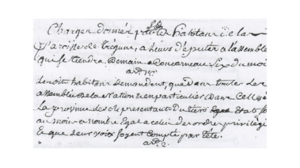 Charges données par les habitans de la
paroisse de Trégunc, a leurs députés a l'assemblée
qui se tiendra demain a Concarneau le du mois
art 1er
lesdits habitans demandent, que dans toutes les
assemblées de la Nation et en particulier dans Celle de
la province les représentants du tiers Etats soient
au moins a nombre Egal a celui des ordres privilégiés
& que leurs voix soyent comptés par tête.
art 2.